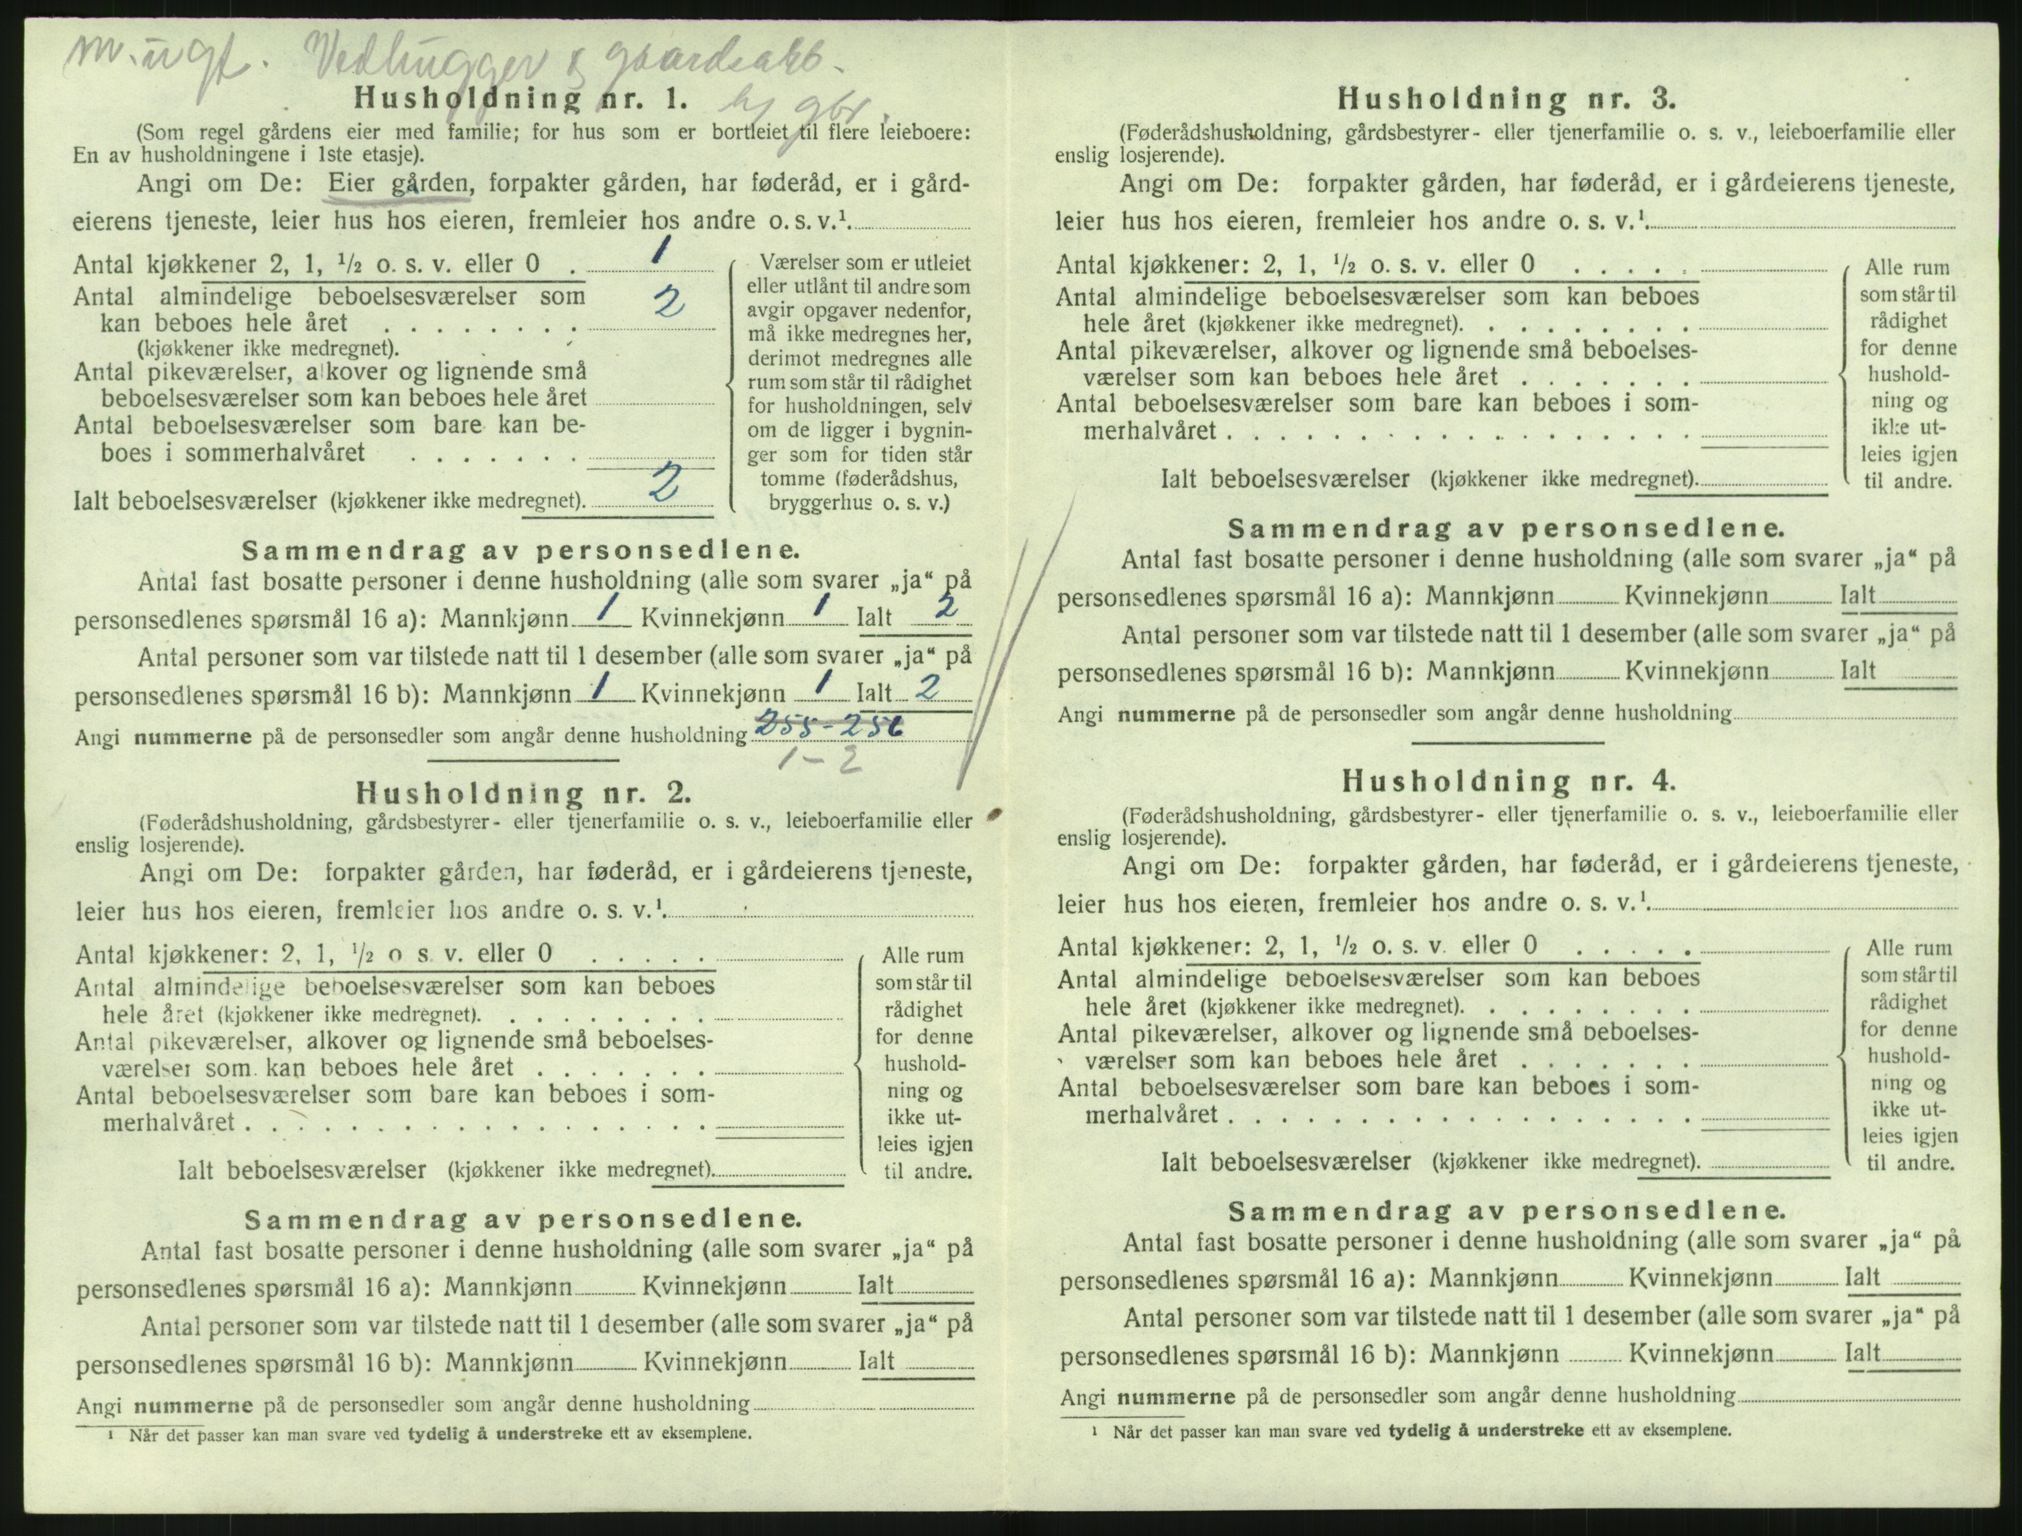 m. ugt. Vedhugger & gaardsarb.
hj gbr.
Husholdning nr. 1.
(Som regel gårdens eier med familie; for hus som er bortleiet til flere leieboere:
En av husholdningene i 1ste etasje).
Angi om De: Eier gården, forpakter gården, har føderåd, er i gård-
eierens tjeneste, leier hus hos eieren, fremleier hos andre o. s. v.¹.
Antal kjøkkener 2, 1, ½ o. s. v. eller 0 . 1
Antal almindelige beboelsesværelser som
kan beboes hele året . . . . . . . . 2
(kjøkkener ikke medregnet).
Antal pikeværelser, alkover og lignende små
beboelsesværelser som kan beboes hele året
Antal beboelsesværelser som bare kan be-
boes i sommerhalvåret . . . . . . .
Ialt beboelsesværelser (kjøkkener ikke medregnet). 2
Værelser som er utleiet
eller utlånt til andre som
avgir opgaver nedenfor,
må ikke medregnes her,
derimot medregnes alle
rum som står til rådighet
for husholdningen, selv
om de ligger i bygnin-
ger som for tiden står
tomme (føderådshus,
bryggerhus o. s. v.)
Sammendrag av personsedlene.
Antal fast bosatte personer i denne husholdning (alle som svarer „ja“ på
personsedlenes spørsmål 16 a): Mannkjønn 1 Kvinnekjønn 1 Ialt 2
Antal personer som var tilstede natt til 1 desember (alle som svarer „ja“ på
personsedlenes spørsmål 16 b): Mannkjønn 1 Kvinnekjønn 1 Ialt 2
Angi nummerne på de personsedler som angår denne husholdning 255-256
1-2
Husholdning nr. 2.
(Føderådshusholdning, gårdsbestyrer- eller tjenerfamilie o. s. v., leieboerfamilie eller
enslig losjerende).
Angi om De: forpakter gården, har føderåd, er i gårdeierens tjeneste,
leier hus hos eieren, fremleier hos andre o. s. v.¹.
Antal kjøkkener: 2, 1, ½ o s. v. eller 0 . . . . .
Antal almindelige beboelsesværelser som kan beboes
hele året (kjøkkener ikke medregnet). . . . . . . . .
Antal pikeværelser, alkover og lignende små beboelses-
værelser som kan beboes hele året . . . . . . .
Antal beboelsesværelser som bare kan beboes i som-
merhalvåret . . . . . . . . . . . . . . . . . .
Ialt beboelsesværelser (kjøkkener ikke medregnet).
Alle rum
som står til
rådighet
for denne
hushold-
ning og
ikke ut-
leies igjen
til andre.
Sammendrag av personsedlene.
Antal fast bosatte personer i denne husholdning (alle som svarer „ja“ på
personsedlenes spørsmål 16 a): Mannkjønn Kvinnekjønn Ialt
Antal personer som var tilstede natt til 1 desember (alle som svarer „ja“ på
personsedlenes spørsmål 16 b): Mannkjønn Kvinnekjønn Ialt
Angi nummerne på de personsedler som angår denne husholdning
¹ Når det passer kan man svare ved tydelig å understreke ett av eksemplene.
Husholdning nr. 3.
(Føderådshusholdning, gårdsbestyrer- eller tjenerfamilie o. s. v., leieboerfamilie eller
enslig losjerende).
Angi om De: forpakter gården, har føderåd, er i gårdeierens tjeneste,
leier hus hos eieren, fremleier hos andre o. s. v.¹.
Antal kjøkkener: 2, 1, ½ o. s. v. eller 0 . . . . .
Antal almindelige beboelsesværelser som kan beboes
hele året (kjøkkener ikke medregnet). . . . . . . . .
Antal pikeværelser, alkover og lignende små beboelses-
værelser som kan beboes hele året . . . . . . .
Antal beboelsesværelser som bare kan beboes i som-
merhalvåret . . . . . . . . . . . . . . . . . .
Ialt beboelsesværelser (kjøkkener ikke medregnet).
Alle rum
som står til
rådighet
for denne
hushold-
ning og
ikke ut-
leies igjen
til andre.
Sammendrag av personsedlene.
Antal fast bosatte personer i denne husholdning (alle som svarer „ja“ på
personsedlenes spørsmål 16 a): Mannkjønn Kvinnekjønn Ialt
Antal personer som var tilstede natt til 1 desember (alle som svarer „ja“ på
personsedlenes spørsmål 16 b): Mannkjønn Kvinnekjønn Ialt
Angi nummerne på de personsedler som angår denne husholdning
Husholdning nr. 4.
(Føderådshusholdning, gårdsbestyrer- eller tjenerfamilie o. s. v., leieboerfamilie eller
enslig losjerende).
Angi om De: forpakter gården, har føderåd, er i gårdeierens tjeneste,
leier hus hos eieren, fremleier hos andre o. s. v.¹.
Antal kjøkkener: 2, 1, ½ o. s. v. eller 0 . . . . .
Antal almindelige beboelsesværelser som kan beboes
hele året (kjøkkener ikke medregnet). . . . . . . . .
Antal pikeværelser, alkover og lignende små beboelses-
værelser som kan beboes hele året . . . . . . .
Antal beboelsesværelser som bare kan beboes i som-
merhalvåret . . . . . . . . . . . . . . . . . .
Ialt beboelsesværelser (kjøkkener ikke medregnet).
Alle rum
som står til
rådighet
for denne
hushold-
ning og
ikke ut-
leies igjen
til andre.
Sammendrag av personsedlene.
Antal fast bosatte personer i denne husholdning (alle som svarer „ja“ på
personsedlenes spørsmål 16 a): Mannkjønn Kvinnekjønn Ialt
Antal personer som var tilstede natt til 1 desember (alle som svarer „ja“ på
personsedlenes spørsmål 16 b): Mannkjønn Kvinnekjønn Ialt
Angi nummerne på de personsedler som angår denne husholdning
¹ Når det passer kan man svare ved tydelig å understreke ett av eksemplene.